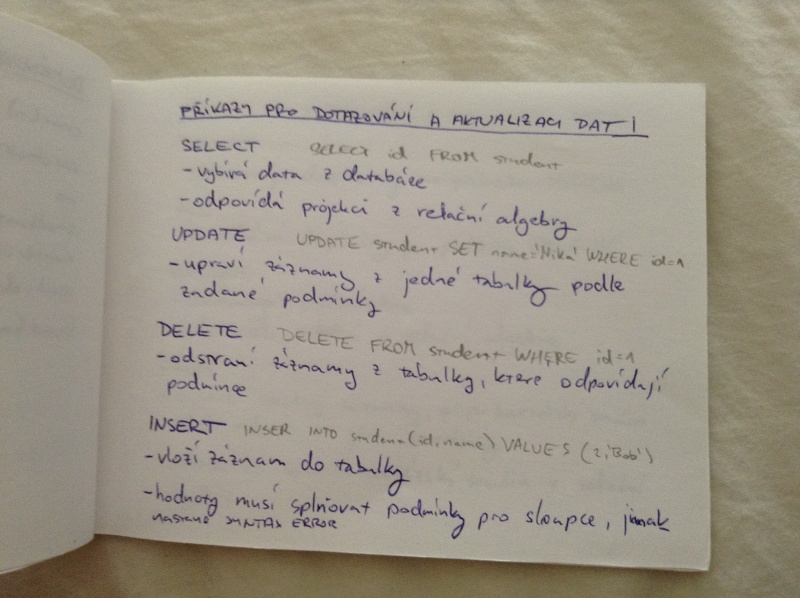 PŘÍKAZY PRO DOTAZOVÁNÍ A AKTUALIZACI DAT
SELECT SELECT id FROM student
- vybírá data z databáze
- odpovídá projekci z relační algebry
UPDATE UPDATE student SET name='Nika' WHERE id=1
- upraví záznamy z jedné tabulky podle
zadané podmínky
DELETE DELETE FROM student WHERE id=1
- odstraní záznamy z tabulky, které odpovídají
podmínce
INSERT INSER INTO student(id,name) VALUES (2,'Bob')
- vloží záznam do tabulky
- hodnoty musí splňovat podmínky pro sloupce, jinak
nastane SYNTAX ERROR